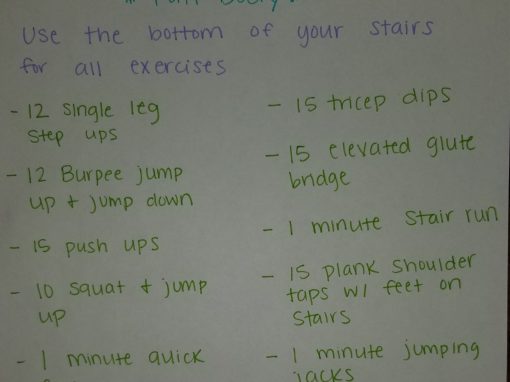 Use the bottom of your stairs
for all exercises
- 12 single leg
step ups
- 12 Burpee jump
up + jump down
- 15 push ups
- 10 squat + jump
up
- 1 minute quick
- 15 tricep dips
- 15 elevated glute
bridge
- 1 minute stair run
- 15 plank shoulder
taps w/ feet on
stairs
- 1 minute jumping
jacks